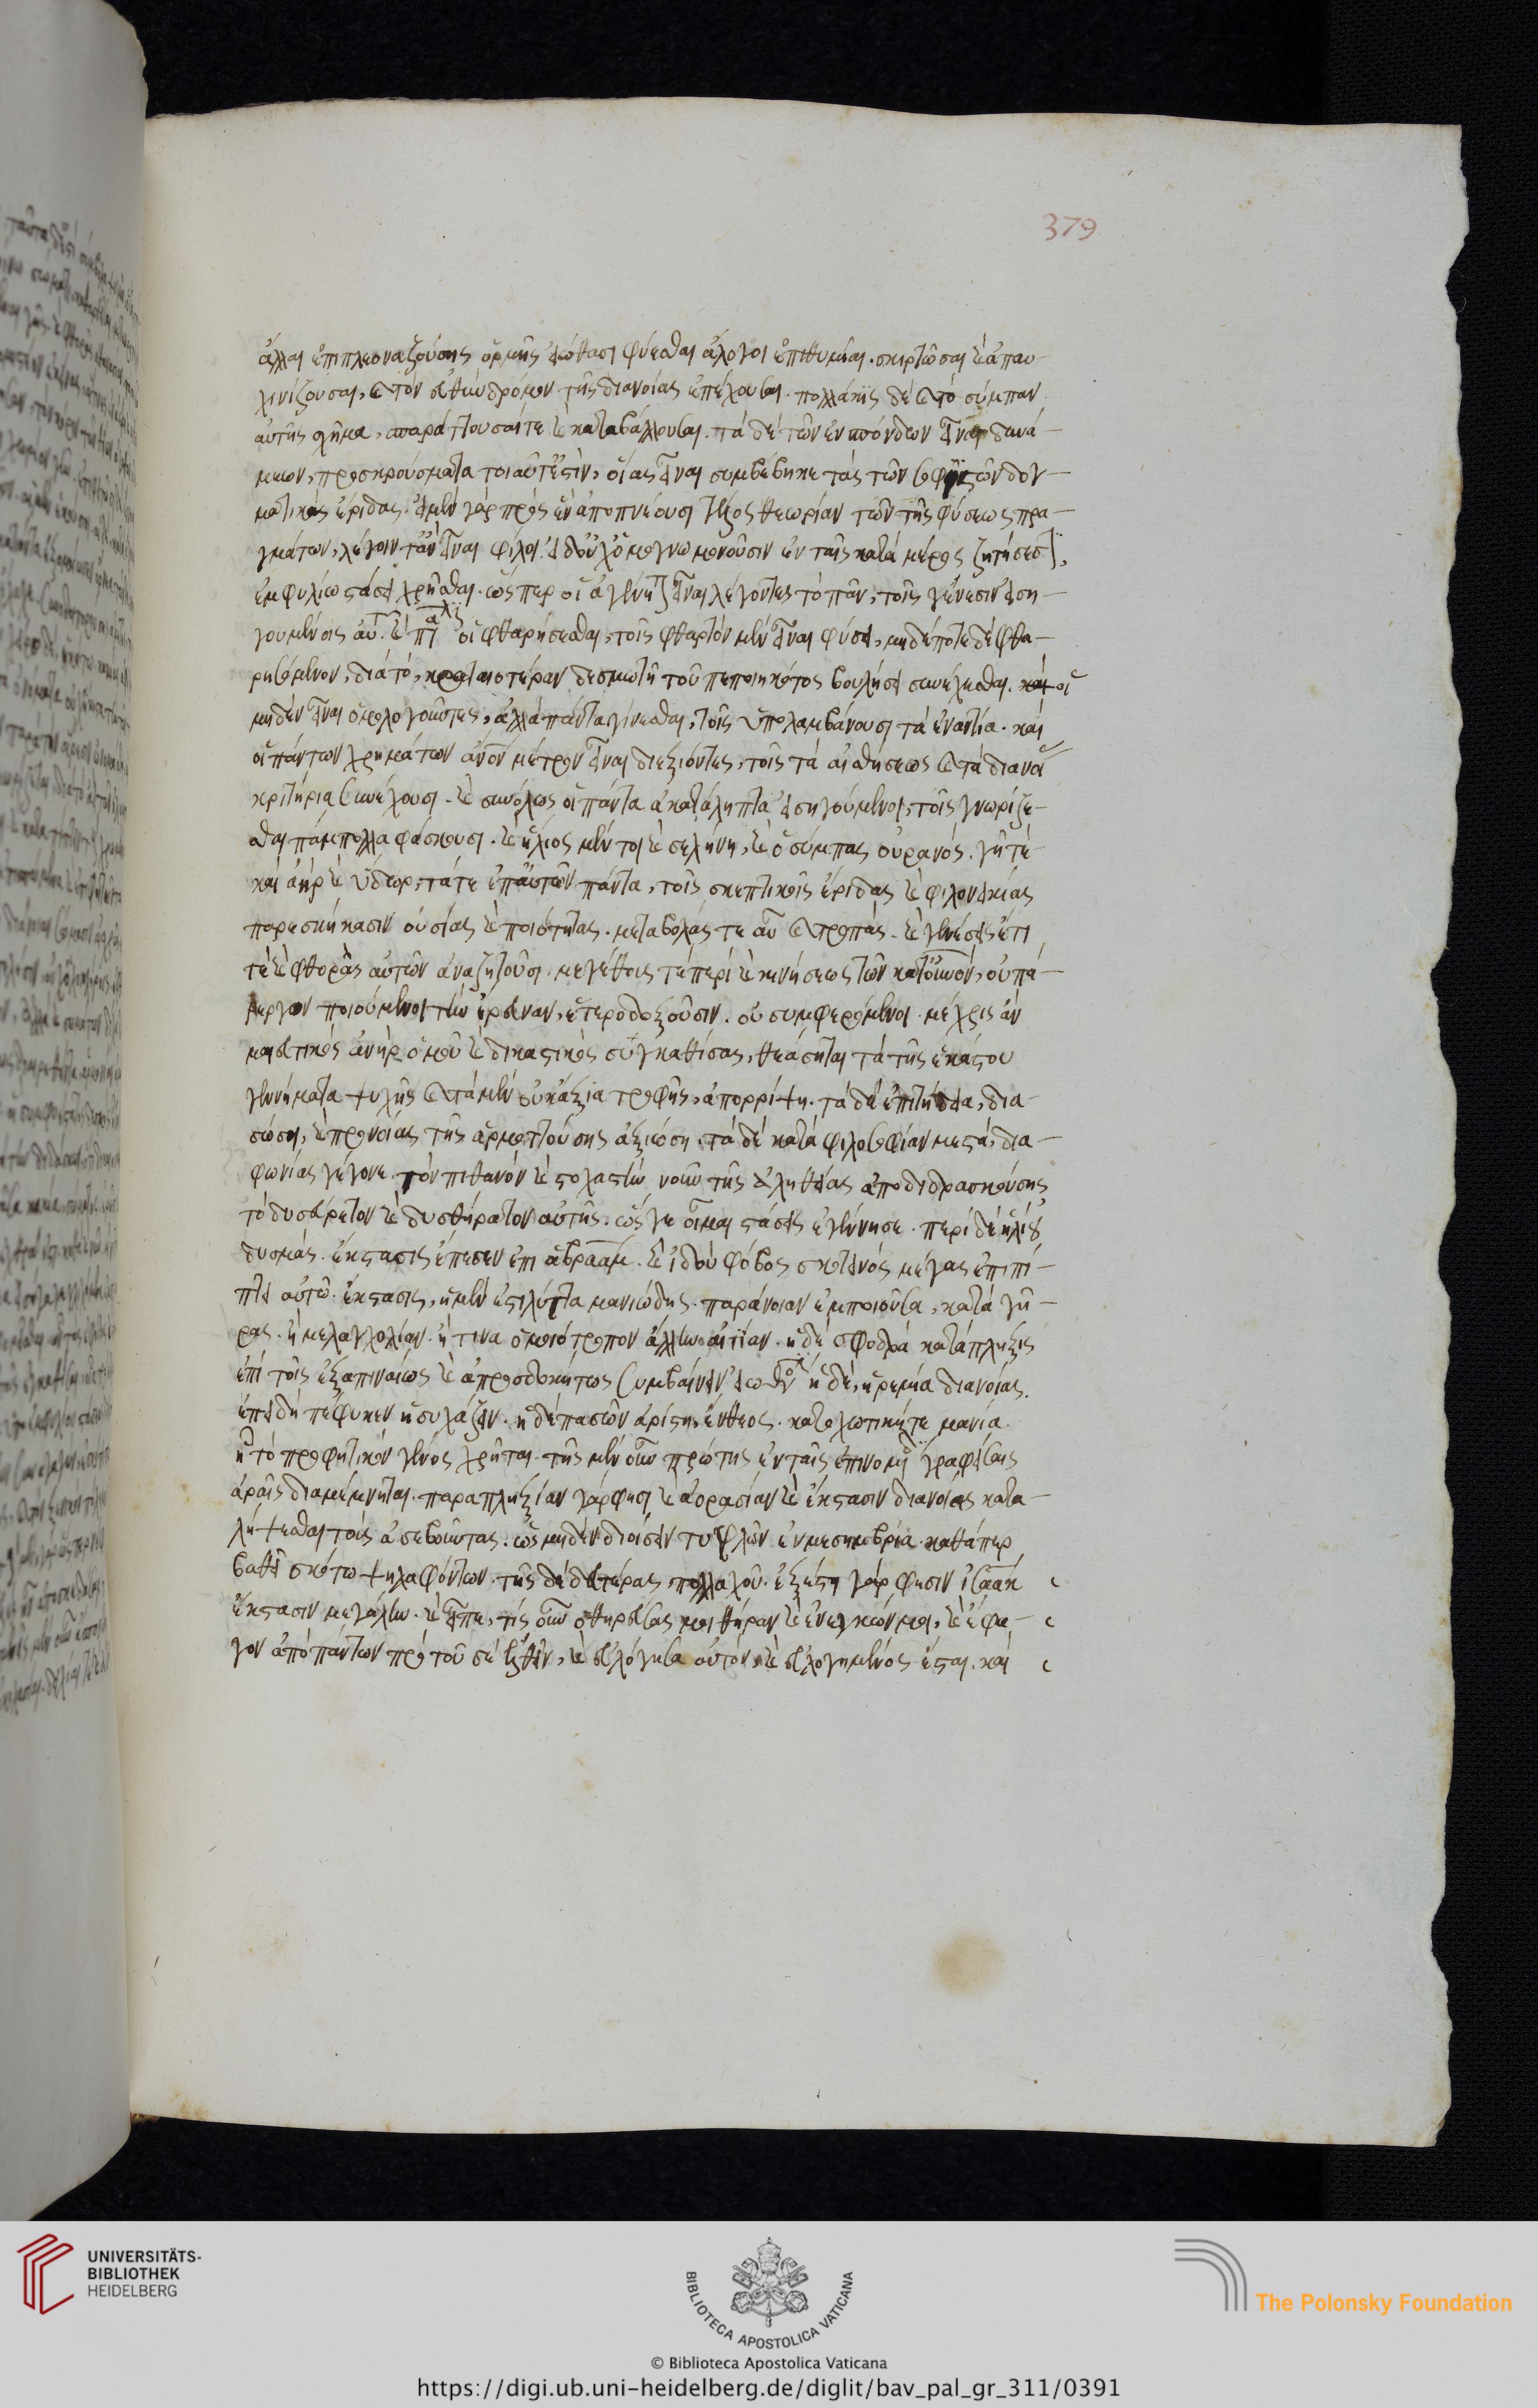 379
ἄλλαι ἐπιπλεοναζούσης ὁρμῆς εἰώθασι φύεσθαι ἄλογοι ἐπιθυμίαι. σκιρτῶσαι καὶ ἀπαυ-
χενίζουσαι, καὶ τὸν εὐθὺν δρόμον τῆς διανοίας ἐπέχουσαι. πολλάκις δὲ καὶ τὸ σύμπαν
αὐτῆς σχῆμα, σπαράττουσαί τε καὶ καταβάλλουσαι. τὰ δὲ τῶν ἐν σπόνδων εἶναι δυνά-
μεων, προσκρούσματα τοιαῦτ' ἐστὶν, οἵας εἶναι συμβέβηκε τὰς τῶν σοφιστῶν δογ-
ματικὰς ἔριδας. εἰ μὲν γὰρ πρὸς ἓν ἀποπνέουσι τέλος θεωρίαν τῶν τῆς φύσεως πρα-
γμάτων, λέγοιντ' ἂν εἶναι φίλοι. εἰ δ' οὐχ ὁμογνωμονοῦσιν ἐν ταῖς κατὰ μέρος ζητήσεσιν,
ἐμφυλίῳ στάσει χρῆσθαι. ὥσπερ οἱ ἀγένητον εἶναι λέγοντες τὸ πᾶν, τοῖς γένεσιν εἰση-
γουμένοις αὐτοῦ. καὶ πάλιν οἱ φθαρήσεσθαι, τοῖς φθαρτὸν μὲν εἶναι φύσει, μηδέποτε δὲ φθα-
ρησόμενον, διὰ τὸ, κραταιοτέρῳ δεσμῷ τῇ τοῦ πεποιηκότος βουλήσει συνέχεσθαι. καὶ οἱ
μηδὲν εἶναι ὁμολογοῦντες, ἀλλὰ πάντα γίνεσθαι, τοῖς ὑπολαμβάνουσι τὰ ἐναντία. καὶ
οἱ πάντων χρημάτων ἄνον μέτρον εἶναι διεξιόντες, τοῖς τὰ αἰσθήσεως καὶ τὰ διανοίας
κριτήρια συνέχουσι. καὶ συνόλως οἱ πάντα ἀκατάληπτα εἰσηγούμενοι, τοῖς γνωρίζε-
σθαι πάμπολλα φάσκουσι. καὶ ἥλιος μέντοι καὶ σελήνη, καὶ ὁ σύμπας οὐρανός. γῆ τε
καὶ ἀὴρ καὶ ὕδωρ, τά τε ἐπ' αὐτῶν πάντα, τοῖς σκεπτικοῖς ἔριδας καὶ φιλονεικίας
παρεσκήκασιν οὐσίας καὶ ποιότητας. μεταβολάς τε αὖ καὶ τροπὰς. καὶ γενέσεις ἔτι
τε καὶ φθορὰς αὐτῶν ἀναζητοῦσι. μεγέθους τε πέρι καὶ κινήσεως τῶν κατ' οὐνὸν, οὐ πά-
ρεργον ποιούμενοι τὴν ἔρευναν, ἑτεροδοξοῦσιν. οὐ συμφερόμενοι μέχρις ἂν
μαιευτικὸς ἀνὴρ ὁμοῦ καὶ δικαστικὸς συγκαθίσας, θεάσηται τὰ τῆς ἑκάστου
γεννήματα ψυχῆς καὶ τὰ μὲν οὐκ ἄξια τροφῆς, ἀπορρίψῃ. τὰ δ' ἐπιτήδεια, δια-
σώσῃ, καὶ προνοίας τῆς ἁρμοττούσης ἀξιώσῃ. τὰ δὲ κατὰ φιλοσοφίαν μεστὰ, δια-
φωνίας γέγονε. τὸν πιθανὸν καὶ στοχαστὴν νοῦν τῆς ἀληθείας ἀποδιδρασκούσης
τὸ δυσεύρετον καὶ δυσθήρατον αὐτῆς. ὥς γε οἶμαι στάσεις ἐγέννησε. περὶ δὲ ἡλίου
δυσμὰς. ἔκστασις ἐπέπεσεν ἐπὶ ἀβραάμ. καὶ ἰδοὺ φόβος σκοτεινὸς μέγας ἐπιπί-
πτει αὐτῷ. ἔκστασις, ἡ μέν ἐστι λύττα μανιώδης. παράνοιαν ἐμποιοῦσα, κατὰ γῆ-
ρας. ἢ μελαγχολίαν. ἤ τινα ὁμοιότροπον ἄλλην αἰτίαν. ἡ δὲ σφοδρὰ κατάπληξις
ἐπὶ τοῖς ἐξαπιναίως καὶ ἀπροσδοκήτως συμβαίνειν εἰωθόσιν ἡ δὲ, ἠρεμία διανοίας.
ἐπειδὴ πέφυκεν ἡσυχάζειν. ἡ δὲ πασῶν ἀρίστη, ἔνθεος. κατοκωτική τε μανία.
ᾗ τὸ προφητικὸν γένος χρῆται. τῆς μὲν οὖν πρώτης ἐν ταῖς ἐπινομίδι γραφείσαις
ἀραῖς διαμέμνηται. παραπληξίαν γάρ φησι καὶ ἀορασίαν καὶ ἔκστασιν διανοίας κατα-
λήψεσθαι τοὺς ἀσεβοῦντας. ὡς μηδὲν διοίσειν τυφλῶν ἐν μεσημβρίᾳ καθάπερ
βαθεῖ σκότῳ ψηλαφόντων. τῆς δὲ δευτέρας, πολλαχοῦ. ἐξέστη γάρ φησιν ἰσαὰκ
ἔκστασιν μεγάλην. καὶ εἶπε, τίς οὖν ὁ θηρεύσας μοι θήραν καὶ ἐνεγκών μοι, καὶ ἔφα-
γον ἀπὸ πάντων πρὸ τοῦ σὲ ἐλθεῖν, καὶ εὐλόγησα αὐτὸν, καὶ εὐλογημένος ἔσται. καὶ
UNIVERSITÄTS-
BIBLIOTHEK
HEIDELBERG
BIBLIOTECA APOSTOLICA VATICANA
The Polonsky Foundation
© Biblioteca Apostolica Vaticana
https://digi.ub.uni-heidelberg.de/diglit/bav_pal_gr_311/0391